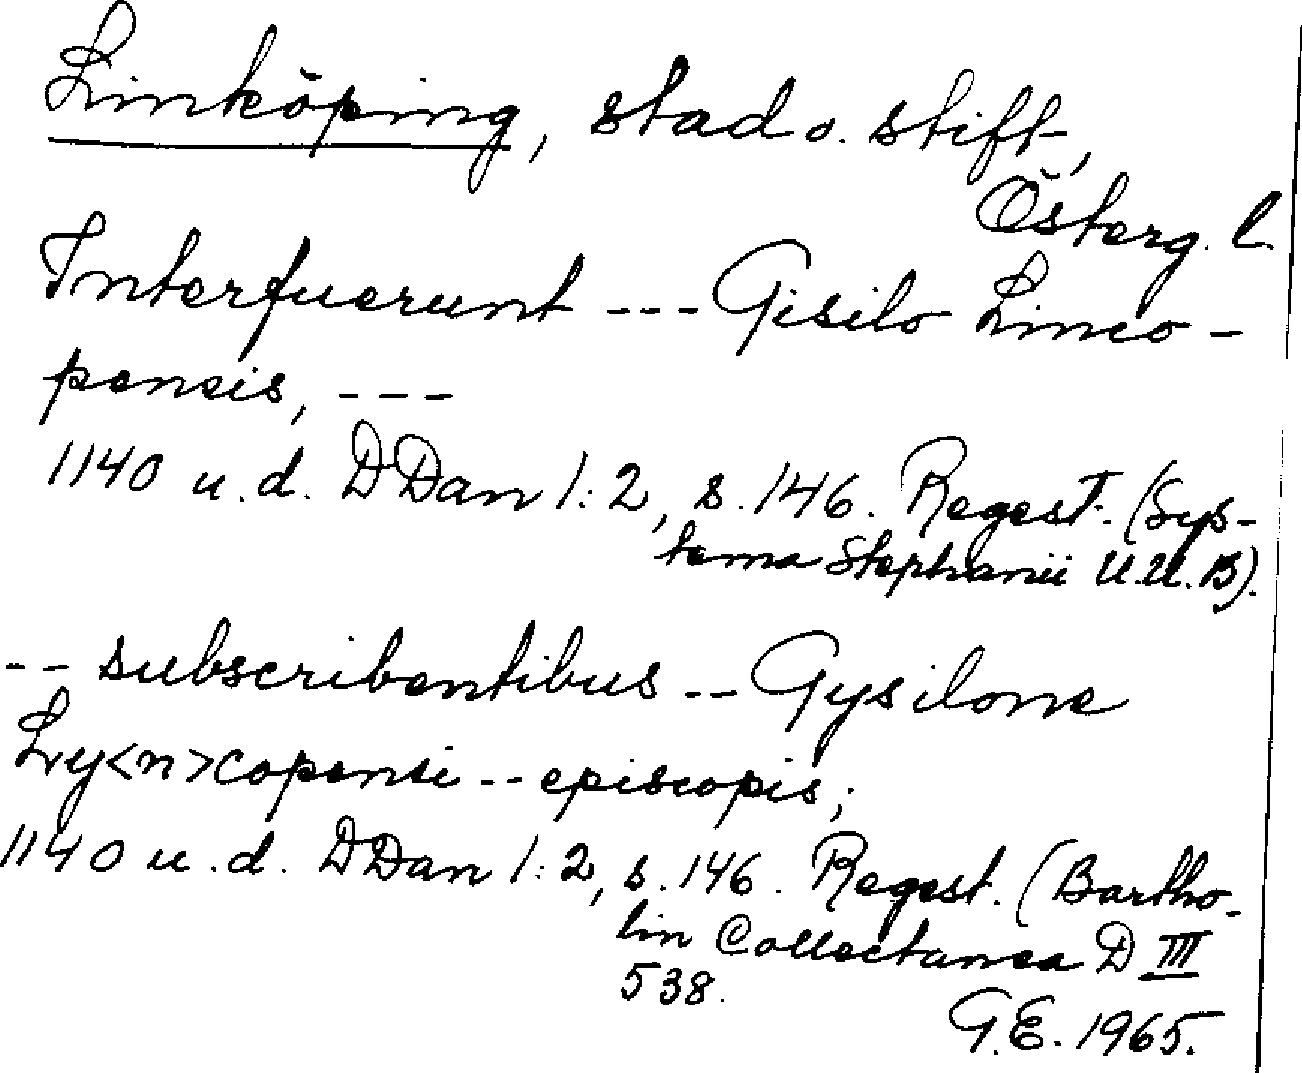 Linköping, stad o. stift,
Österg. l.
Interfuerunt --- Gisilo Linco-
pensis, ---
1140 u.d. DDan 1:2, s. 146. Regest. (Sys-
tema Stephanii U.U.B).
-- subscribentibus -- Gysilone
Ly<n>copensi -- episcopis;
1140 u.d. DDan 1:2, s. 146. Regest. (Bartho-
lin Collectanea D III
538.
G.E. 1965.